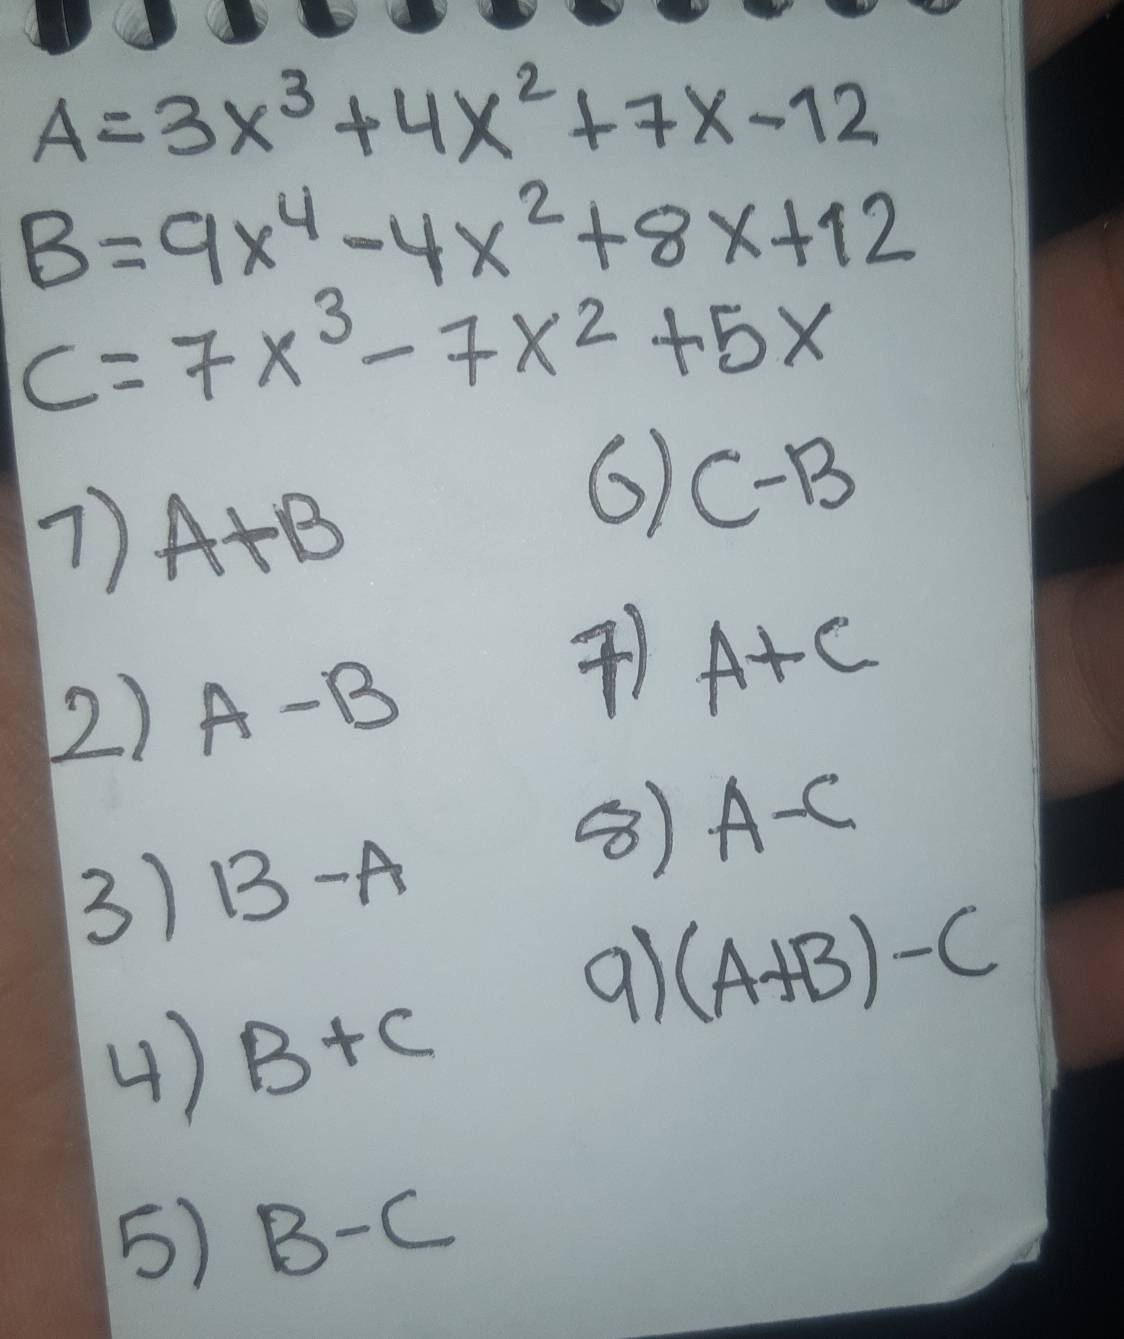 A=3x³+4x²+7x-12
B=9x⁴-4x²+8x+12
C=7x³-7x²+5x
1) A+B
2) A-B
3) B-A
4) B+C
5) B-C
6) C-B
7) A+C
8) A-C
9) (A+B)-C